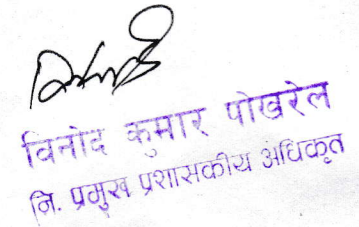 विनोद कुमार पोखरेल
नि. प्रमुख प्रशासकीय अधिकृत